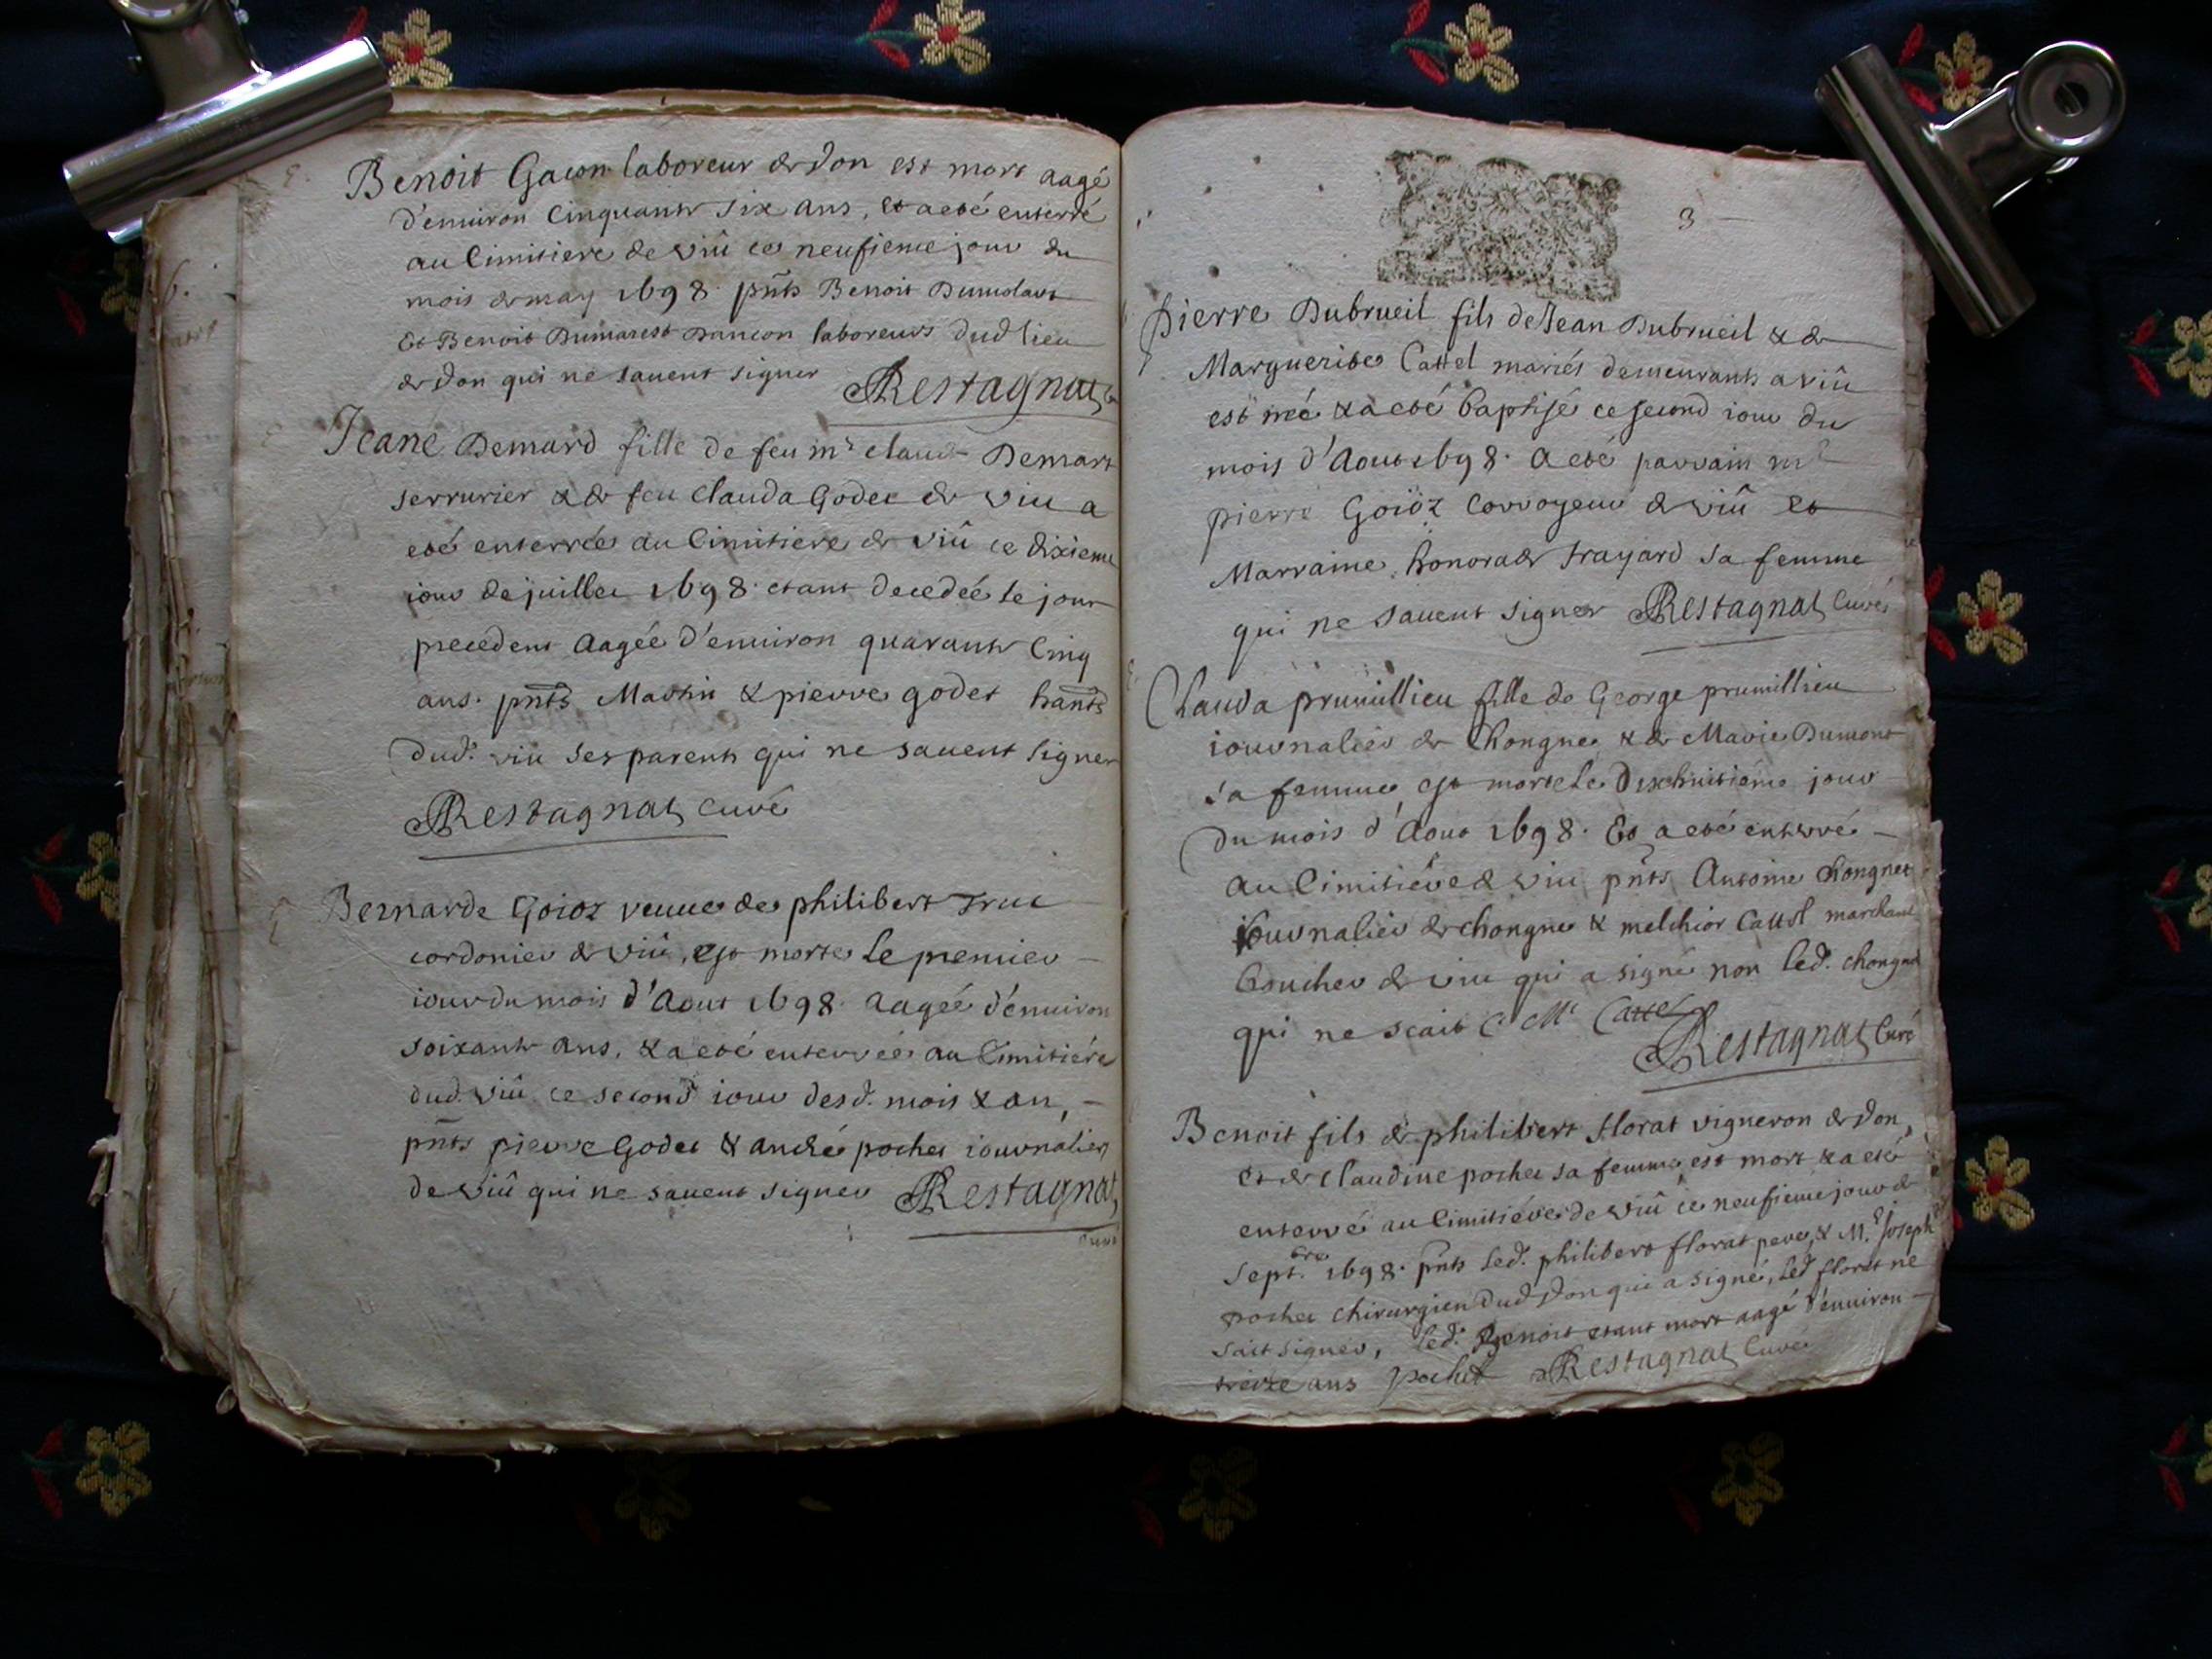 Benoit Gacon laboreur de Don est mort aagé
d'enuiron Cinquante six ans, et a eté enterré
au Cimitiere de Viû ce neufieme jour du
mois de may 1698. pnts Benoit Dumolard
Et Benoit Dumarest Dancon laboreurs dud lieu
de Don qui ne sauent signer Restagnat
Jeane Demard fille de feu mr claude Demard
serrurier & de feu Clauda Godet de Viu a
eté enterrée au Cimitiere de Viû ce dixieme
iour de juillet 1698. etant decedée le jour
precedent aagée d'enuiron quarante Cinq
ans. pnts Martin & pierre godet hants
dud. viu ses parents qui ne sauent signer
Restagnat curé
Bernarde Goioz veuue de philibert Truc
cordonier de Viû, est morte le premier
iour du mois d'Aout 1698. aagée d'enuiron
soixante ans, & a eté enterrée au Cimitiére
dud. Viû ce second iour desd. mois & an,
pnts pierre Godet & andré pochet iournalier
de Viû qui ne sauent signer Restagnat
curé
3
pierre Dubrueil fils de Jean Dubrueil & de
Marguerite Cattel mariés demeurants a viû
est né & a eté baptisé ce second iour du
mois d'Aout 1698. a eté parrain mr
pierre Goïoz Corroyeur de viû et
Marraine honorade trayard sa femme
qui ne sauent signer Restagnat Curé
Clauda prumillieu fille de George prumillieu
iournalier de Chongne & de Marie Dumont
sa femme est morte le dixhuitiéme jour
du mois d'Aout 1698. Et a eté enterré
au Cimitiére de viu pnts Antoine Chongnet
iournalier de chongne & melchior Cattel marchant
boucher de viu qui a signé non led. chongnet
qui ne scait M Cattel
Restagnat Curé
Benoit fils de philibert florat vigneron de Don,
et de Claudine pochet sa femme est mort & a eté
enterré au Cimitiére de Viû ce neufieme jour de
Sept.bre 1698. pnts led. philibert florat pere, & Mr Joseph
pochet chirurgien dud Don qui a signé, led florat ne
sait signer, led. Benoit etant mort aagé d'enuiron
treize ans pochet Restagnat Curé